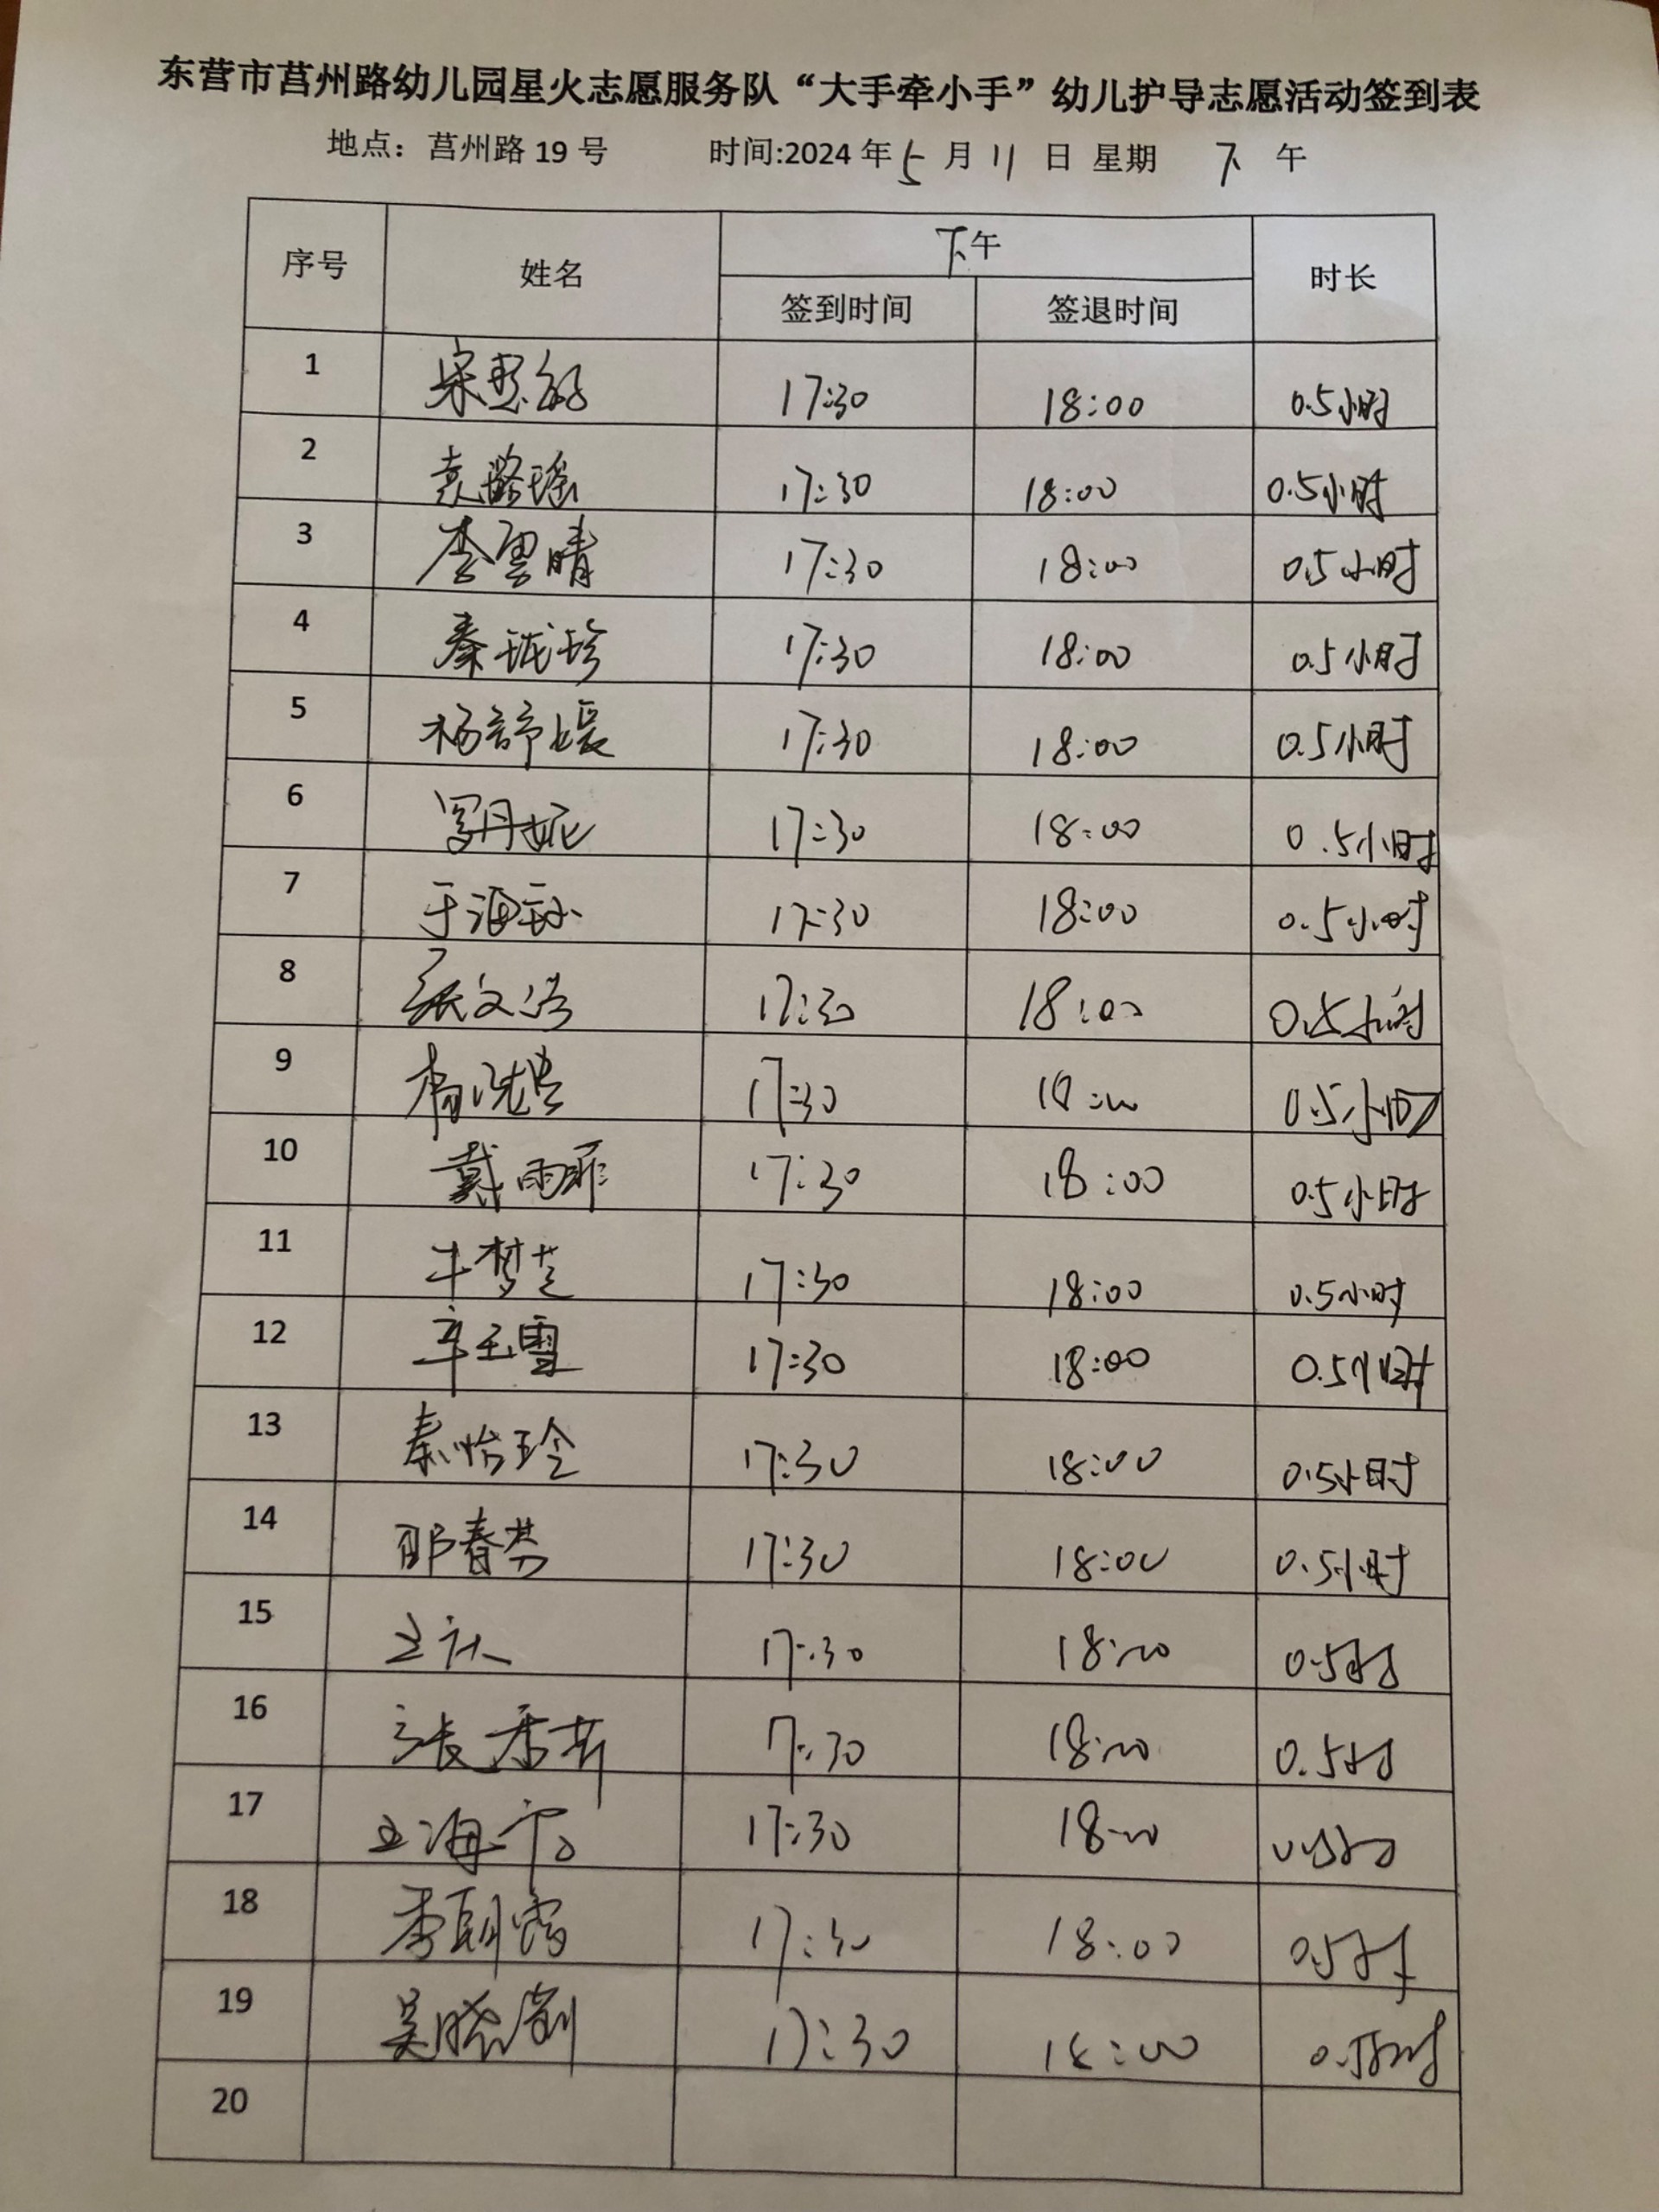 东营市莒州路幼儿园星火志愿服务队“大手牵小手”幼儿护导志愿活动签到表
地点：莒州路 19 号 时间:2024 年 5 月 11 日 星期 下 午
序号 姓名 下午 时长
签到时间 签退时间
1 宋慧 17:30 18:00 0.5小时
2 袁璐瑶 17:30 18:00 0.5小时
3 李雲晴 17:30 18:00 0.5小时
4 秦珑珍 17:30 18:00 0.5小时
5 杨舒媛 17:30 18:00 0.5小时
6 罗丹妮 17:30 18:00 0.5小时
7 于海 17:30 18:00 0.5小时
8 张文 17:30 18:00 0.5小时
9 17:30 18:00 0.5小时
10 戴雨菲 17:30 18:00 0.5小时
11 牛梦芝 17:30 18:00 0.5小时
12 辛玉雪 17:30 18:00 0.5小时
13 秦怡玲 17:30 18:00 0.5小时
14 春芬 17:30 18:00 0.5小时
15 17:30 18:00 0.5时
16 张秀 17:30 18:00 0.5时
17 王海宁 17:30 18:00
18 李朝霞 17:30 18:00 0.5时
19 吴晓 17:30 18:00 0.5小时
20